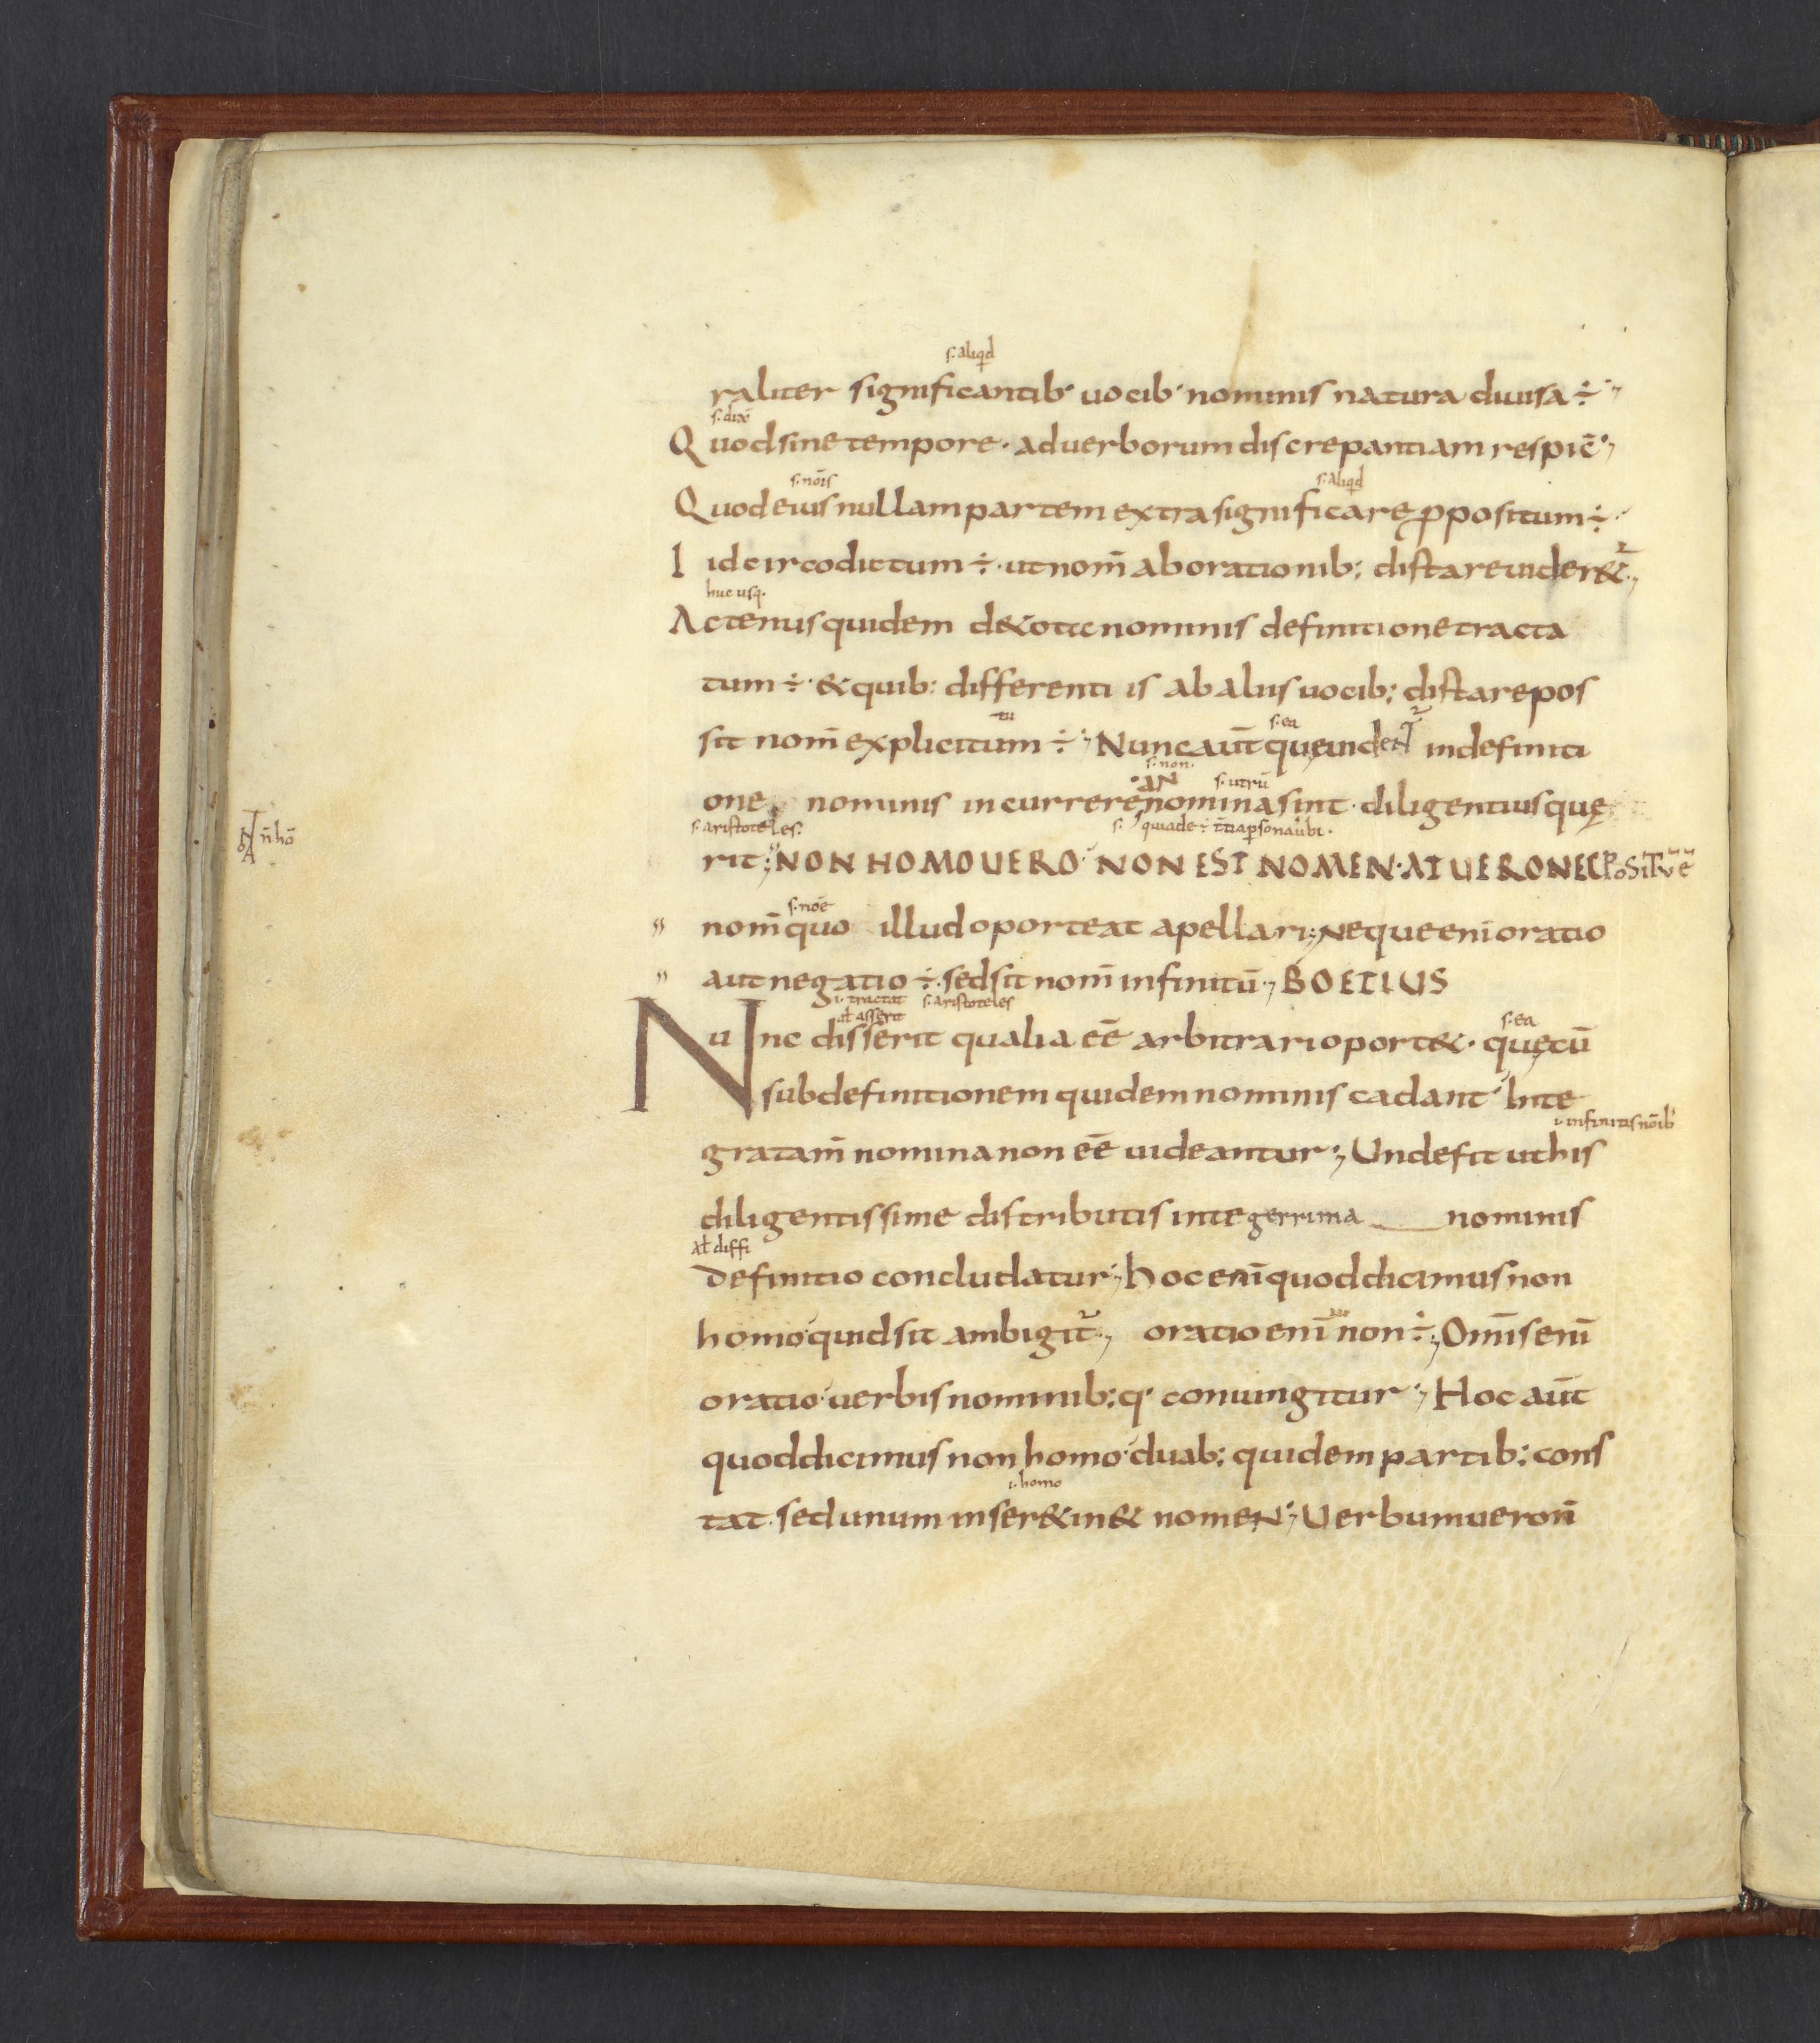 s. aliqd
raliter significantib· uocib· nominis natura diuisa ÷·,
s. dixē
Quod sine tempore· ad uerborum discrepantiam respic̄·,
s. nōis s. aliqd
Quod eius nullam partem extra significare ꝓpositum ÷·
Iidcirco dictum ÷· ut nom̄ ab orationib; distare uider&ur·,
huc usq·
Actenus quidem de
nominis definitione tracta
tum ÷· & quib; differentiis ab aliis uocib; distare pos
s. ea
sit nom̄ explicitum ÷·, Nunc aūt quę uident̃ in definiti
s. non· s. utrū
AN
one nominis incurrere nomina sint· diligentius quę
s. aristoteles·
n̄ hō
rit·, NON HOMO UERO· NON EST NOMEN· AT UERO NEC POSITŪ Ē
s. nōe
nom̄ quo illud oporteat apellari·, Neque eni oratio
aut negatio ÷· sed sit nom̄ infinitū·, BOETIUS
i· tractat s. aristoteles
ał asserit s. ea
Nunc disserit qualia eē arbitrari oport&· quę cū
sub definitionem quidem nominis cadant· Inte
i· infinitis nōib·
gra tam̄ nomina non eē uideantur·, Unde fit ut his
diligentissime distributis integerrima nominis
ał diffi
definitio concludatur·, hoc eni quod dicimus non
homo quid sit ambigit̃·, oratio eni non ÷·, Omīs eni
oratio· uerbis nominib; q· coniungitur·, Hoc aūt
quod dicimus non homo· duab; quidem partib; cons
i· homo
tat· sed unum inser& in & nomeN·, Uerbum uero n̄